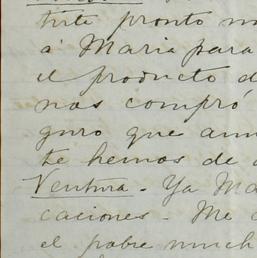 pronto
á Maria para
el producto d
nos compró
guro que aun
te hemos de
Ventura. - Ya Ma
caciones. - Me
el pobre much